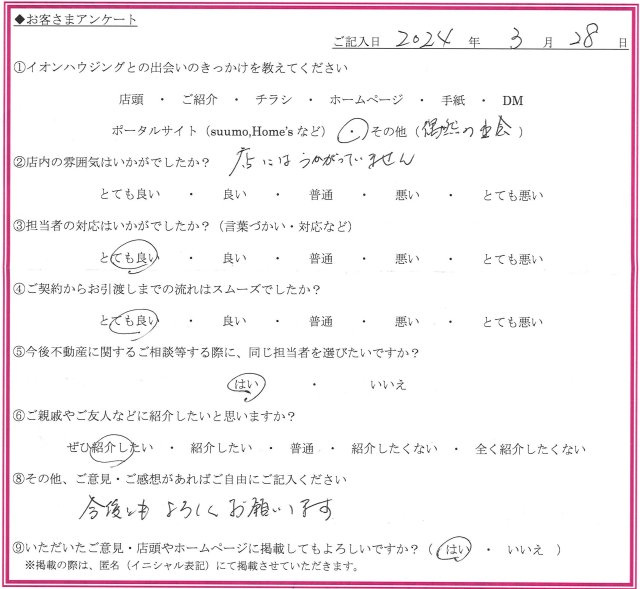 ◆お客さまアンケート
ご記入日 2024 年 3 月 28 日
①イオンハウジングとの出会いのきっかけを教えてください
店頭 ・ ご紹介 ・ チラシ ・ ホームページ ・ 手紙 ・ DM
ポータルサイト（suumo,Home'sなど） ・ その他（偶然の出会）
②店内の雰囲気はいかがでしたか？ 店にはうかがっていません
とても良い ・ 良い ・ 普通 ・ 悪い ・ とても悪い
③担当者の対応はいかがでしたか？（言葉づかい・対応など）
とても良い ・ 良い ・ 普通 ・ 悪い ・ とても悪い
④ご契約からお引渡しまでの流れはスムーズでしたか？
とても良い ・ 良い ・ 普通 ・ 悪い ・ とても悪い
⑤今後不動産に関するご相談等する際に、同じ担当者を選びたいですか？
はい ・ いいえ
⑥ご親戚やご友人などに紹介したいと思いますか？
ぜひ紹介したい ・ 紹介したい ・ 普通 ・ 紹介したくない ・ 全く紹介したくない
⑧その他、ご意見・ご感想があればご自由にご記入ください
今後ともよろしくお願いします
⑨いただいたご意見・店頭やホームページに掲載してもよろしいですか？（ はい ・ いいえ ）
※掲載の際は、匿名（イニシャル表記）にて掲載させていただきます。